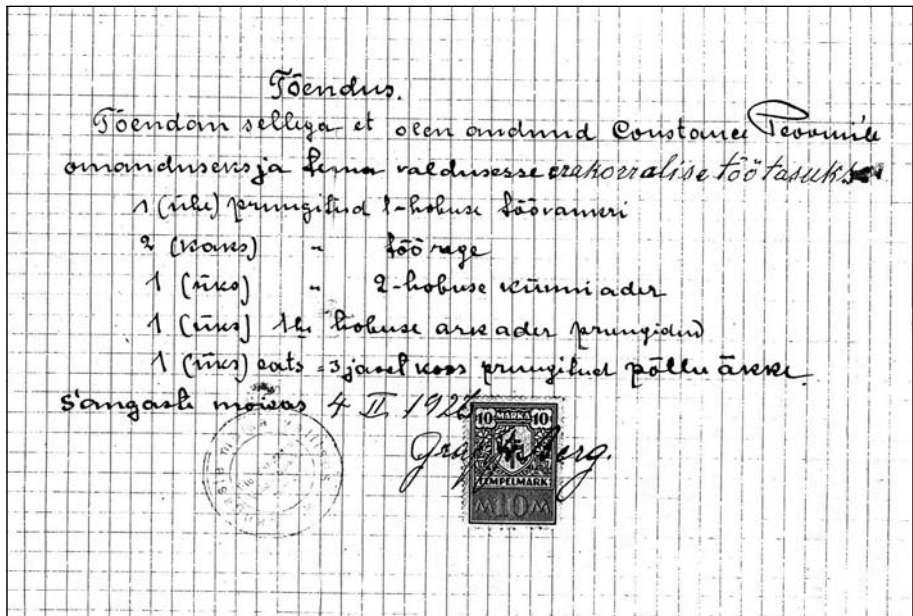 Tõendus.
Tõendan sellega et olen andnud Constance
omanduseks ja tema valdusesse erakorralise töötasuks
1 (ühe) pruugitud 1-hobuse töövankri
2 (kaks) " töörege
1 (üks) " 2-hobuse künniader
1 (üks) 1he hobuse ark ader pruugidud
1 (üks) sats =3 jaost koos pruugitud põllu äkke
Sangaste moisas 4 II 192
10 MARKA 10
Graf Berg.
TEMPELMARK
10